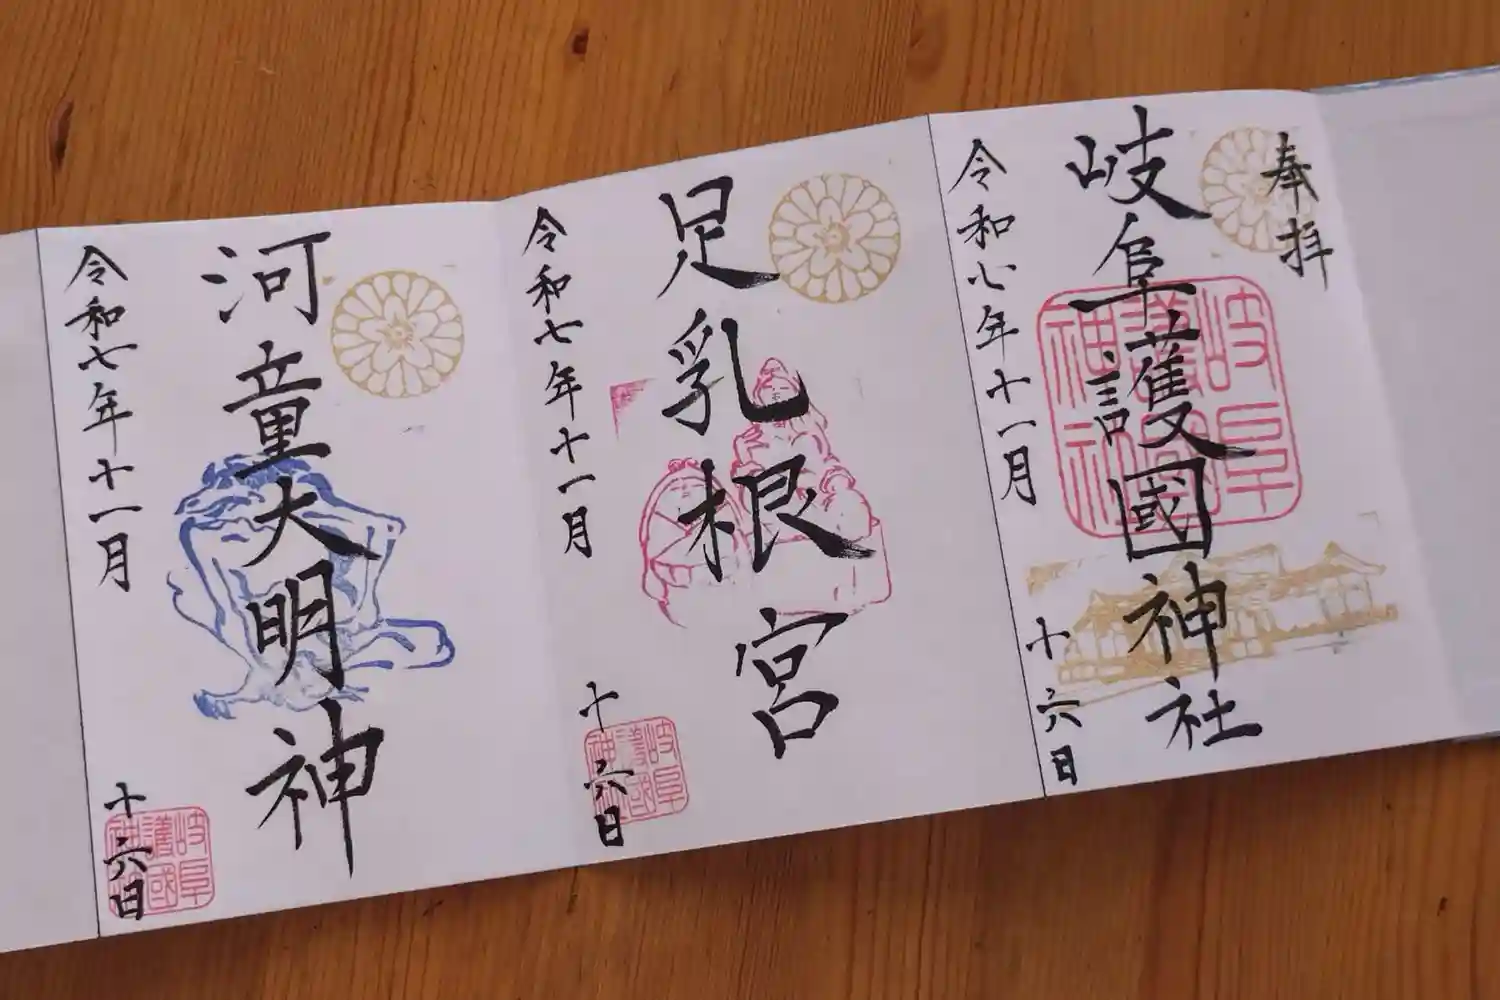 奉拝
岐阜護國神社
令和七年十一月十六日
足乳根宮
令和七年十一月十六日
河童大明神
令和七年十一月十六日
岐阜
護國
神社
岐阜
護國
神社
岐阜
護國
神社